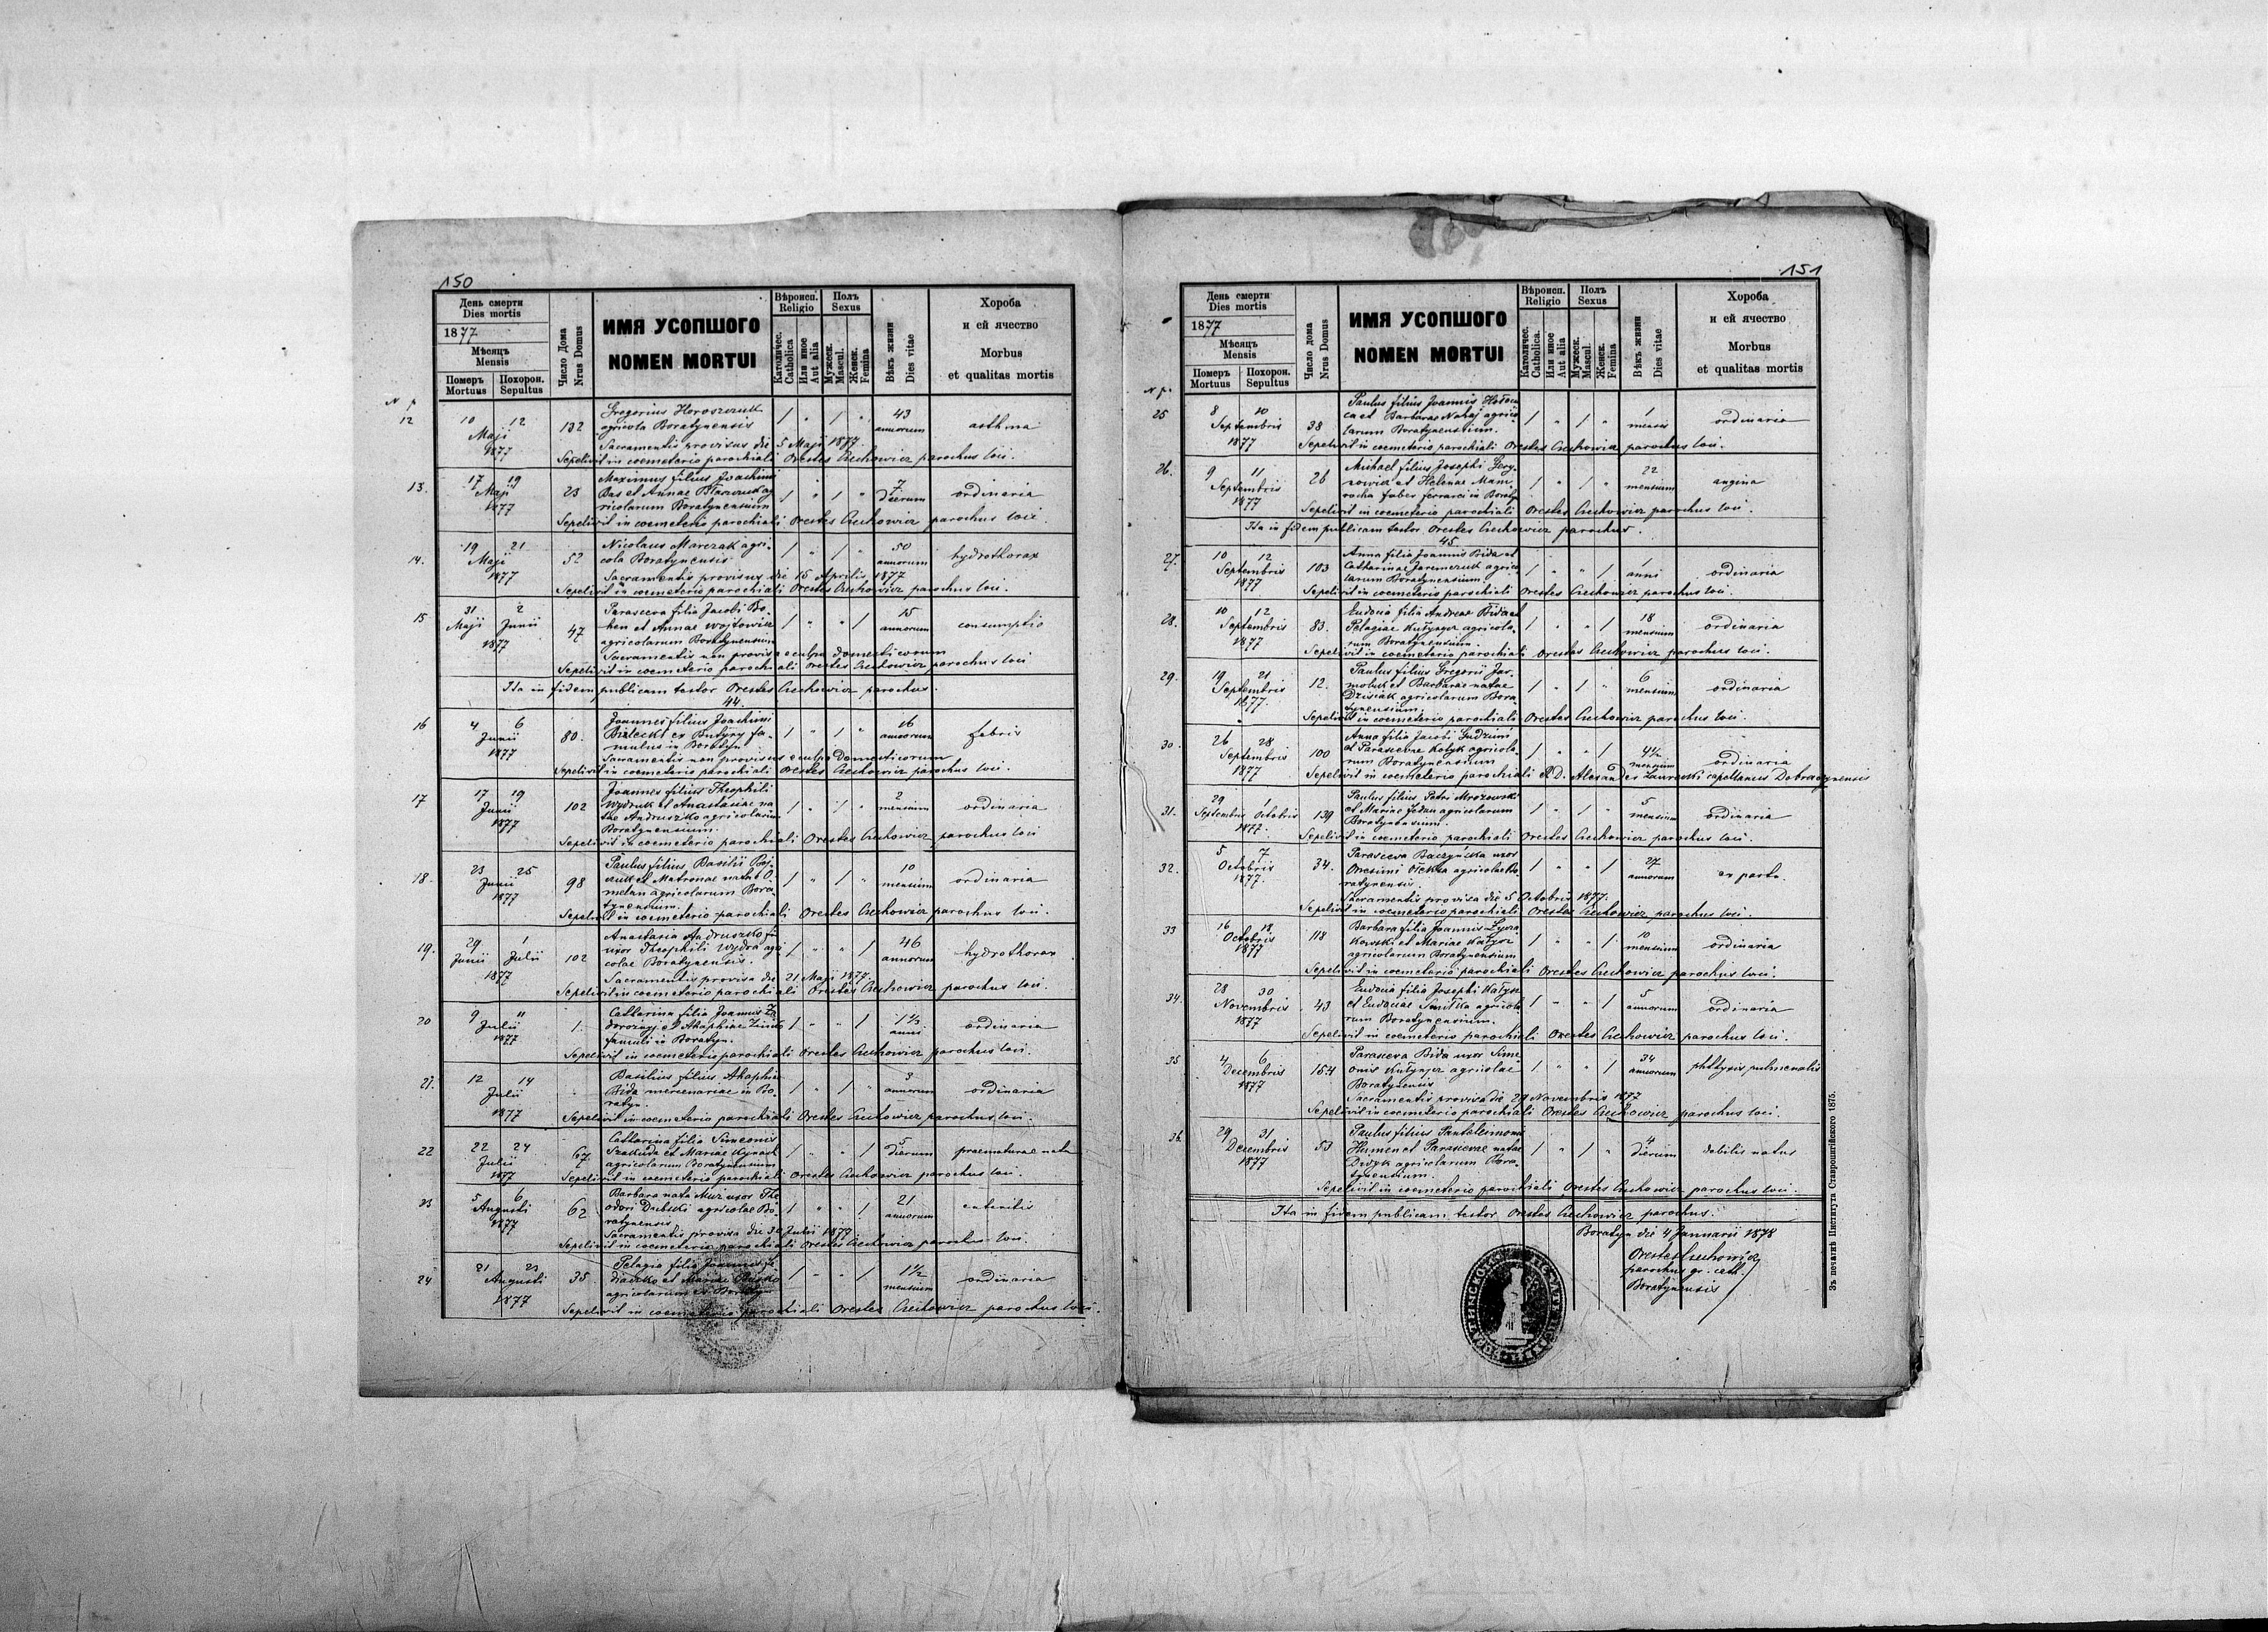 150
День смерти
Dies mortis
1877
Мѣсяцъ
Mensis
Померъ
Mortuus
Похорон.
Sepultus
Число Дома
Nrus Domus
ИМЯ УСОПШОГО
NOMEN MORTUI
Вѣроисп.
Religio
Католичес.
Catholica
Или иное
Aut alia
Полъ
Sexus
Мужеск.
Mascul.
Женск.
Femina
Вѣкъ жизни
Dies vitae
Хороба
и ей ячество
Morbus
et qualitas mortis
N p
12 10 12 Maji 1877 132 Gregorius Horoszczuk 1 " 1 " 43 annorum asthma
agricola Boratynensis
Sacramentis provisus die 5 Maji 1877.
Sepelivit in coemeterio parochiali Orestes Czechowicz parochus loci.
13. 17 19 Maji 1877 23 Maximus filius Joachimi 1 " 1 " 7 dierum ordinaria
Bas et Annae ag
ricolarum Boratynensium
Sepelivit in coemeterio parochiali Orestes Czechowicz parochus loci.
14. 19 21 Maji 1877 52 Nicolaus Marczak agri- 1 " 1 " 50 annorum hydrothorax
cola Boratynensis
Sacramentis provisus die 15 Aprilis 1877
Sepelivit in coemeterio parochiali Orestes Czechowicz parochus loci.
15 31 Maji 2 Junii 1877 47 Parasceva filia Jacobi Bo- 1 " " 1 15 annorum consumptio
hen et Annae Wojtowicz
agricolarum Boratynensium
Sacramentis non provisa e culpa domesticorum
Sepelivit in coemeterio parochiali Orestes Czechowicz parochus loci
Ita in fidem publicam testor Orestes Czechowicz parochus.
44.
16 4 6 Junii 1877 80. Joannes filius Joachimi 1 " 1 " 16 annorum febris
Bilecki ex Butyny fa-
mulus in Boratyn
Sacramentis non provisus e culpa Domesticorum
Sepelivit in coemeterio parochiali Orestes Czechowicz parochus loci.
17 17 19 Junii 1877 102 Joannes filius Theophili 1 " 1 " 2 mensium ordinaria
Wydruk et Anastasiae na
tae Andruszko agricolarum
Boratynensium.
Sepelivit in coemeterio parochiali Orestes Czechowicz parochus loci
18. 23 25 Junii 1877 98 Paulus filius Basilii Boj- 1 " 1 " 10 mensium ordinaria
czuk et Matronae natae O-
melan agricolarum Bora-
tynensium.
Sepelivit in coemeterio parochiali Orestes Czechowicz parochus loci.
19. 29 Junii 1 Julii 1877 102 Anastasia Andruszko fi 1 " " 1 46 annorum hydrothorax
uxor Theophili Wydra agri
colae Boratynensis.
Sacramentis provisa die 21 Maji 1877.
Sepelivit in coemeterio parochiali Orestes Czechowicz parochus loci.
20 9 11 Julii 1877 1. Catharina filia Joannis Za 1 " " 1 1½ anni ordinaria
dorozny et Ahaphiae
famuli in Boratyn.
Sepelivit in coemeterio parochiali Orestes Czechowicz parochus loci.
21. 12 14 Julii 1877 Basilius filius Ahaphiae 1 " 1 " 3 annorum ordinaria
Bida mercenariae in Bo-
ratyn.
Sepelivit in coemeterio parochiali Orestes Czechowicz parochus loci.
22 22 24 Julii 1877 67 Catharina filia Simeonis 1 " " 1 5 dierum praemature nata
Szakuda et Mariae
agricolarum Boratynensium
Sepelivit in coemeterio parochiali Orestes Czechowicz parochus loci.
23 5 6 Augusti 1877 62 Barbara nata Muz uxor The 1 " " 1 21 annorum enteritis
odori Dubicki agricolae Bo-
ratynensis
Sacramentis provisa die 30 Julii 1877
Sepelivit in coemeterio parochiali Orestes Czechowicz parochus loci.
24 21 23 Augusti 1877 35. Pelagia filia Joannis 1 " " 1 1½ mensium ordinaria
et Mariae
agricolarum
Sepelivit in coemeterio parochiali Orestes Czechowicz parochus loci.
151
День смерти
Dies mortis
1877
Мѣсяцъ
Mensis
Померъ
Mortuus
Похорон.
Sepultus
Число дома
Nrus Domus
ИМЯ УСОПШОГО
NOMEN MORTUI
Вѣроисп.
Religio
Католичес.
Catholica.
Или иное
Aut alia
Полъ
Sexus
Мужеск.
Mascul.
Женск.
Femina
Вѣкъ жизни
Dies vitae
Хороба
и ей ячество
Morbus
et qualitas mortis
N p.
25 8 10 Septembris 1877 38 Paulus filius Joannis 1 " 1 " 1 mensis ordinaria
et Barbarae Nahaj agrico
larum Boratynensium.
Sepelivit in coemeterio parochiali Orestes Czechowicz parochus loci.
26. 9 11 Septembris 1877 26 Michael filius Josephi Gery- 1 " 1 " 22 mensium angina
zowicz et Helenae Mam-
rocha faber ferrarei in Boratyn
Sepelivit in coemeterio parochiali Orestes Czechowicz parochus loci.
Ita in fidem publicam testor Orestes Czechowicz parochus.
45.
27. 10 12 Septembris 1877 103 Anna filia Joannis Bida et 1 " " 1 1 anni ordinaria
Catharinae Jaremczuk agrico
larum Boratynensium.
Sepelivit in coemeterio parochiali Orestes Czechowicz parochus loci.
28. 10 12 Septembris 1877 83. Eudocia filia Andreae Bida et 1 " " 1 18 mensium ordinaria
Pelagiae agricola-
rum Boratynensium.
Sepelivit in coemeterio parochiali Orestes Czechowicz parochus loci.
29. 19 21 Septembris 1877. 12. Paulus filius Gregorii Jar- 1 " 1 " 6 mensium ordinaria
moluk et Barbarae natae
Dzisiak agricolarum Bora
tynensium.
Sepelivit in coemeterio parochiali Orestes Czechowicz parochus loci.
30. 26 28 Septembris 1877 100 Anna filia Jacobi 1 " " 1 4½ mensium ordinaria
et Parascevae Kotyk agricola-
rum Boratynensium
Sepelivit in coemeterio parochiali R. D. Alexander Laurecki capellanus Dobraczynensis
31. 29 Septembris 1 Octobris 1877. 139 Paulus filius Petri Mrozowski 1 " 1 " 5 mensium ordinaria
et Mariae agricolarum
Boratynensium.
Sepelivit in coemeterio parochiali Orestes Czechowicz parochus loci.
32. 5 7 Octobris 1877. 34. Parasceva Baczyńska uxor 1 " " 1 27 annorum ex partu.
Onesimi Oleksa agricolae Bo
ratynensis.
Sacramentis provisa die 5 Octobris 1877.
Sepelivit in coemeterio parochiali Orestes Czechowicz parochus loci.
33 16 18 Octobris 1877 118 Barbara filia Joannis Lysa- 1 " " 1 10 mensium ordinaria
kowski et Mariae Kalysz
agricolarum Boratynensium
Sepelivit in coemeterio parochiali Orestes Czechowicz parochus loci.
34. 28 30 Novembris 1877 43 Eudocia filia Josephi Kalysz 1 " " 1 5 annorum ordinaria
et Eudociae agricola
rum Boratynensium.
Sepelivit in coemeterio parochiali Orestes Czechowicz parochus loci.
35 4 6 Decembris 1877 154 Parasceva Bida uxor Sime 1 " " 1 34 annorum phthysis pulmonalis
onis agricolae
Boratynensis
Sacramentis provisa die 29 Novembris 1877
Sepelivit in coemeterio parochiali Orestes Czechowicz parochus loci.
36. 29 31 Decembris 1877 53 Paulus filius Pantaleimonis 1 " 1 " 4 dierum debilis natus
Humen et Parascevae natae
Dudyk agricolarum Bora-
tynensium.
Sepelivit in coemeterio parochiali Orestes Czechowicz parochus loci.
Ita in fidem publicam testor Orestes Czechowicz parochus.
Boratyn die 4 Januarii 1878
Orestes Czechowicz
parochus gr. cath.
Boratynensis
Зъ печатнѣ Института Ставропигійского 1875.